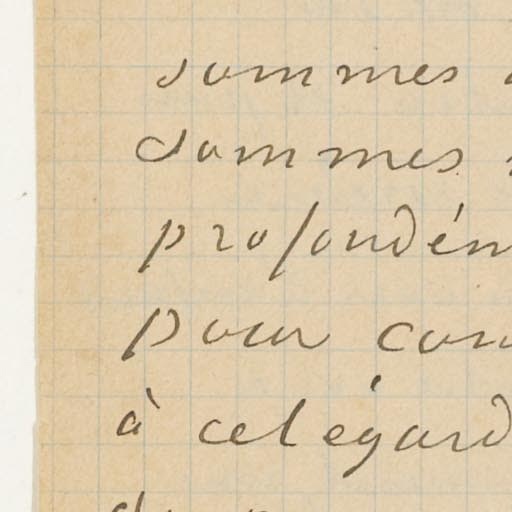 sommes
sommes
profondém
pour con
à cet égard